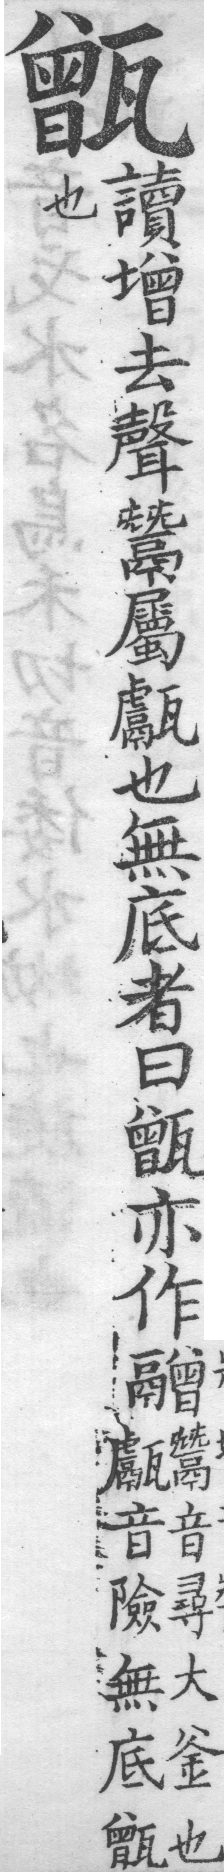 甑
讀增去聲鬵屬甗也無底者曰甑亦作䰝
鬵音尋大釜也
甗音險無底甑
也